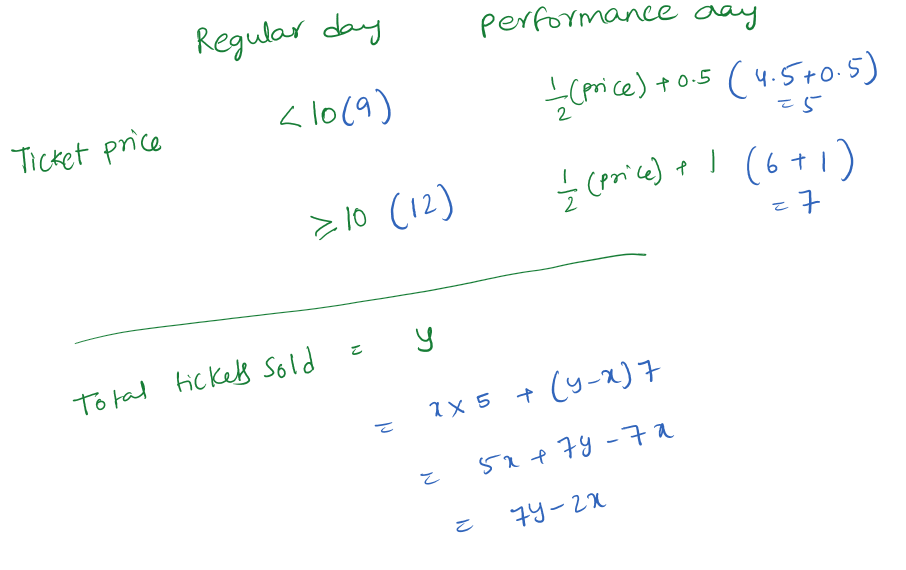 Regular day performance day
< 10 (9) 1/2 (price) + 0.5 (4.5+0.5)
= 5
Ticket price
≥ 10 (12) 1/2 (price) + 1 (6 + 1)
= 7
Total tickets sold = y
= x × 5 + (y-x) 7
= 5x + 7y - 7x
= 7y - 2x